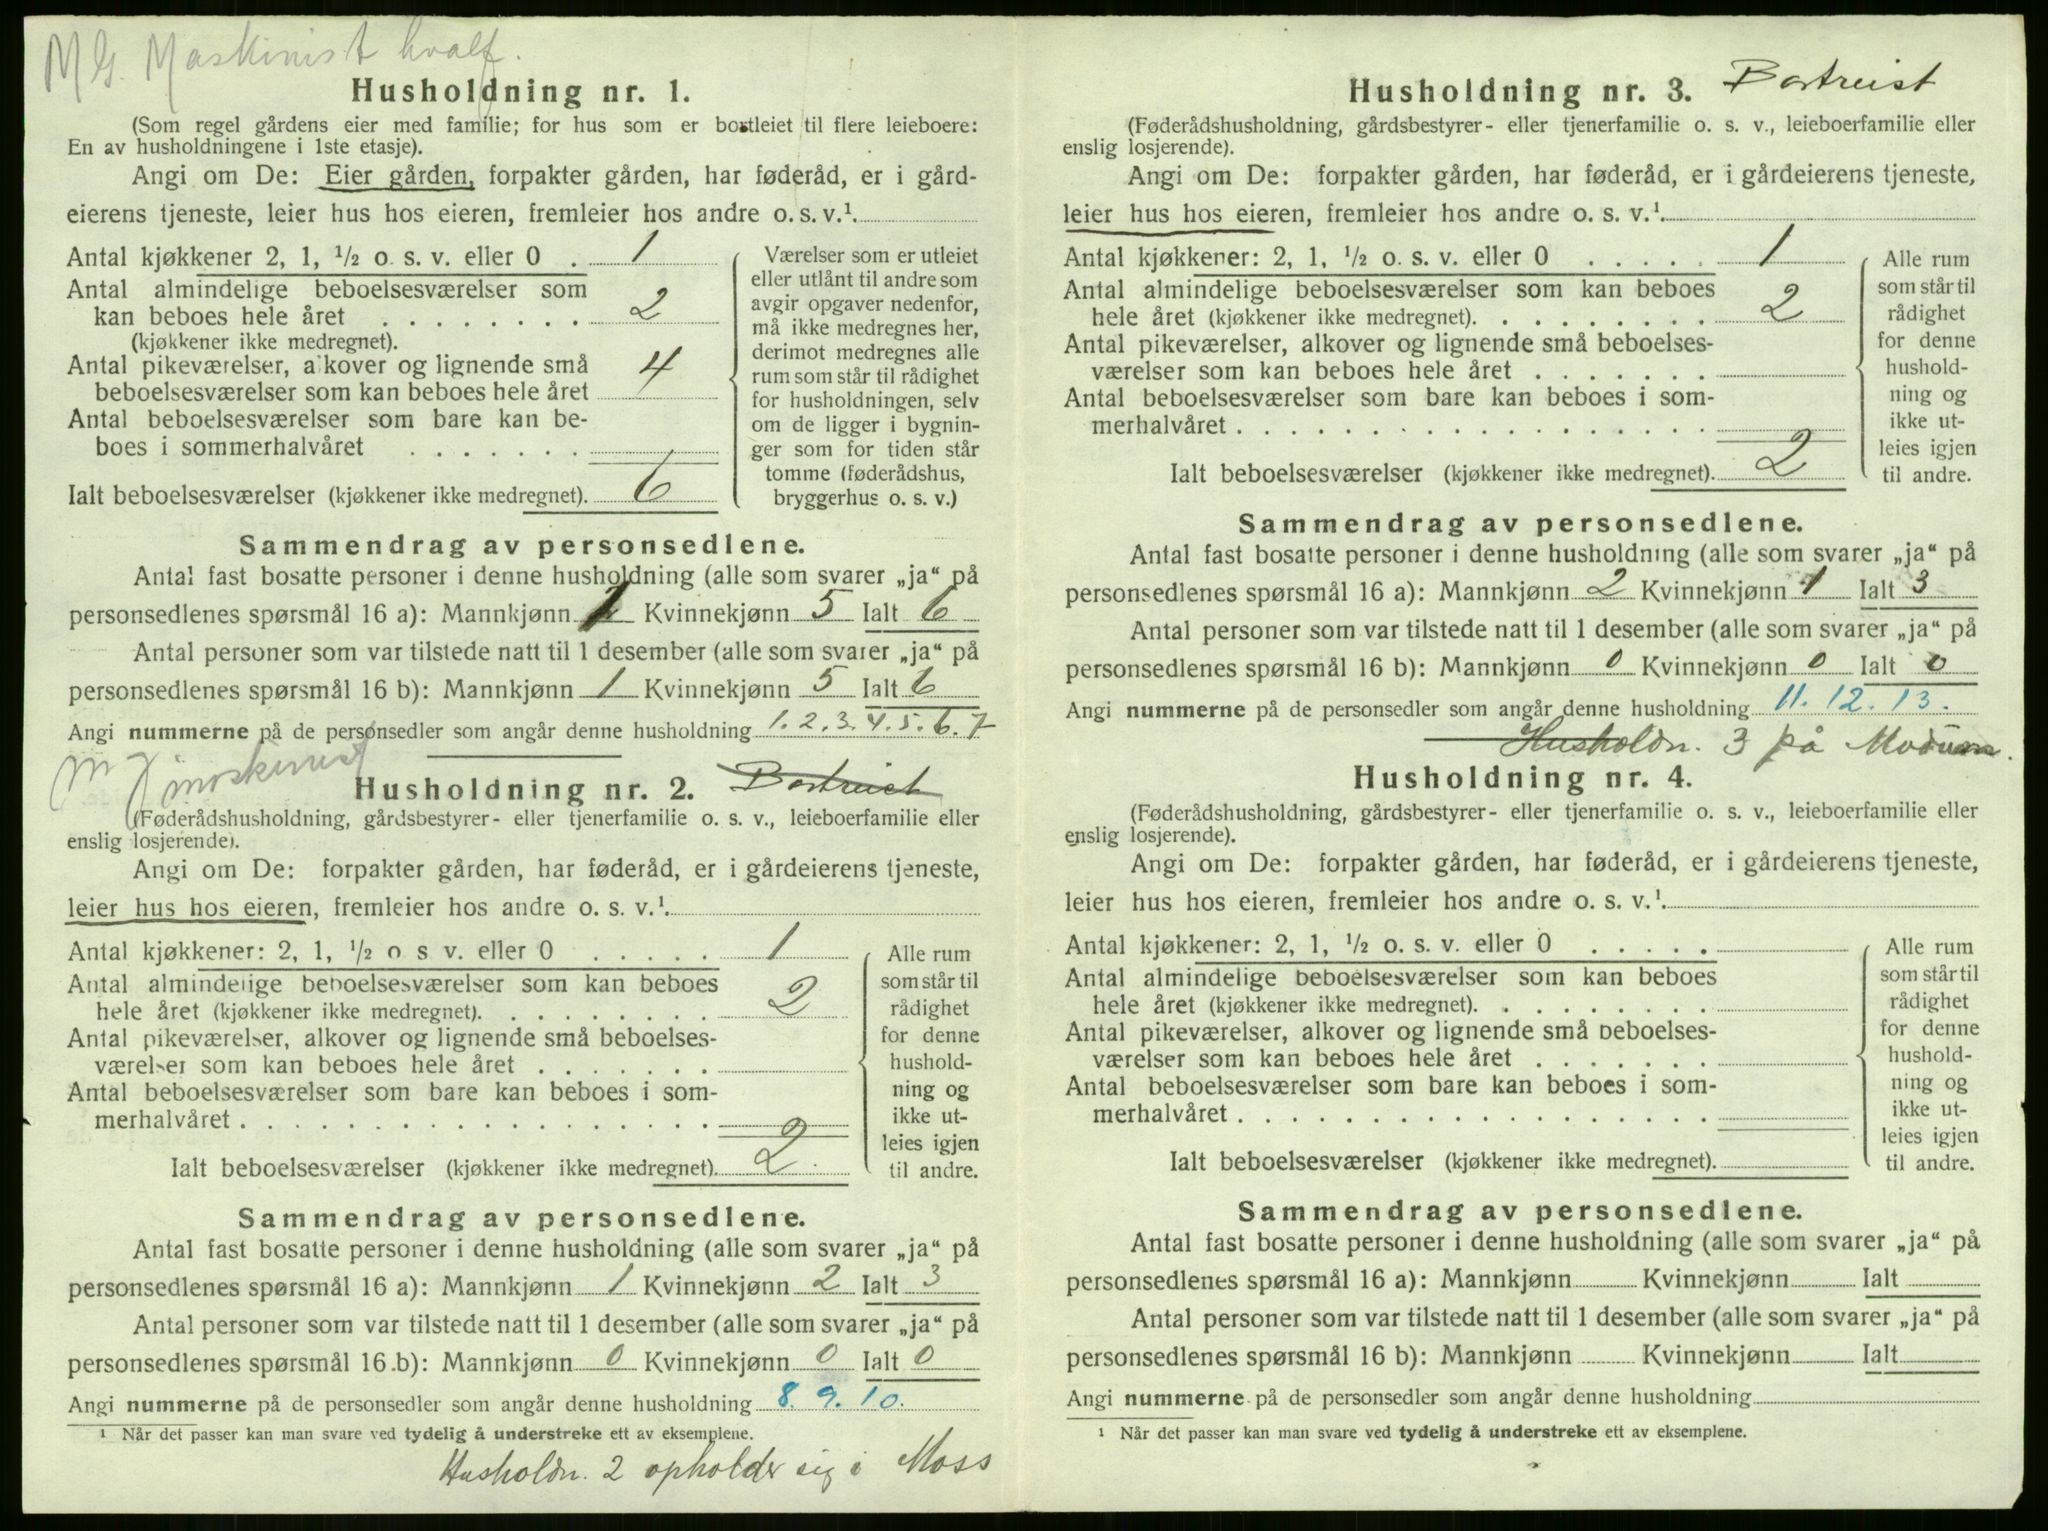 M G. Maskinist kvalf.
Husholdning nr. 1.
(Som regel gårdens eier med familie; for hus som er bortleiet til flere leieboere:
En av husholdningene i 1ste etasje).
Angi om De: Eier gården, forpakter gården, har føderåd, er i gård-
eierens tjeneste, leier hus hos eieren, fremleier hos andre o. s. v.¹.
Antal kjøkkener 2, 1, ½ o. s. v. eller 0 . 1
Antal almindelige beboelsesværelser som
kan beboes hele året . . . . . . . . 2
(kjøkkener ikke medregnet).
Antal pikeværelser, alkover og lignende små
beboelsesværelser som kan beboes hele året 4
Antal beboelsesværelser som bare kan be-
boes i sommerhalvåret . . . . . . .
Ialt beboelsesværelser (kjøkkener ikke medregnet). 6
Værelser som er utleiet
eller utlånt til andre som
avgir opgaver nedenfor,
må ikke medregnes her,
derimot medregnes alle
rum som står til rådighet
for husholdningen, selv
om de ligger i bygnin-
ger som for tiden står
tomme (føderådshus,
bryggerhus o. s. v.)
Sammendrag av personsedlene.
Antal fast bosatte personer i denne husholdning (alle som svarer „ja“ på
personsedlenes spørsmål 16 a): Mannkjønn 1 Kvinnekjønn 5 Ialt 6
Antal personer som var tilstede natt til 1 desember (alle som svarer „ja“ på
personsedlenes spørsmål 16 b): Mannkjønn 1 Kvinnekjønn 5 Ialt 6
Angi nummerne på de personsedler som angår denne husholdning 1. 2. 3. 4. 5. 6. 7
maskinist
Husholdning nr. 2. Bortreist
(Føderådshusholdning, gårdsbestyrer- eller tjenerfamilie o. s. v., leieboerfamilie eller
enslig losjerende).
Angi om De: forpakter gården, har føderåd, er i gårdeierens tjeneste,
leier hus hos eieren, fremleier hos andre o. s. v.¹.
Antal kjøkkener: 2, 1, ½ o s v. eller 0 . . . . . 1
Antal almindelige beboelsesværelser som kan beboes
hele året (kjøkkener ikke medregnet). . . . . . . . . 2
Antal pikeværelser, alkover og lignende små beboelses-
værelser som kan beboes hele året . . . . . . .
Antal beboelsesværelser som bare kan beboes i som-
merhalvåret . . . . . . . . . . . . . . . . . .
Ialt beboelsesværelser (kjøkkener ikke medregnet). 2
Alle rum
som står til
rådighet
for denne
hushold-
ning og
ikke ut-
leies igjen
til andre.
Sammendrag av personsedlene.
Antal fast bosatte personer i denne husholdning (alle som svarer „ja“ på
personsedlenes spørsmål 16 a): Mannkjønn 1 Kvinnekjønn 2 Ialt 3
Antal personer som var tilstede natt til 1 desember (alle som svarer „ja“ på
personsedlenes spørsmål 16 b): Mannkjønn 0 Kvinnekjønn 0 Ialt 0
Angi nummerne på de personsedler som angår denne husholdning 8. 9. 10.
¹ Når det passer kan man svare ved tydelig å understreke ett av eksemplene.
Husholdn. 2 opholder sig i Moss
Husholdning nr. 3. Bortreist
(Føderådshusholdning, gårdsbestyrer- eller tjenerfamilie o. s. v., leieboerfamilie eller
enslig losjerende).
Angi om De: forpakter gården, har føderåd, er i gårdeierens tjeneste,
leier hus hos eieren, fremleier hos andre o. s. v.¹.
Antal kjøkkener: 2, 1, ½ o. s. v. eller 0 . . . . . 1
Antal almindelige beboelsesværelser som kan beboes
hele året (kjøkkener ikke medregnet). . . . . . . . . 2
Antal pikeværelser, alkover og lignende små beboelses-
værelser som kan beboes hele året . . . . . . .
Antal beboelsesværelser som bare kan beboes i som-
merhalvåret . . . . . . . . . . . . . . . . . .
Ialt beboelsesværelser (kjøkkener ikke medregnet). 2
Alle rum
som står til
rådighet
for denne
hushold-
ning og
ikke ut-
leies igjen
til andre.
Sammendrag av personsedlene.
Antal fast bosatte personer i denne husholdning (alle som svarer „ja“ på
personsedlenes spørsmål 16 a): Mannkjønn 2 Kvinnekjønn 1 Ialt 3
Antal personer som var tilstede natt til 1 desember (alle som svarer „ja“ på
personsedlenes spørsmål 16 b): Mannkjønn 0 Kvinnekjønn 0 Ialt 0
Angi nummerne på de personsedler som angår denne husholdning 11. 12. 13.
Husholdn. 3 på Modum.
Husholdning nr. 4.
(Føderådshusholdning, gårdsbestyrer- eller tjenerfamilie o. s. v., leieboerfamilie eller
enslig losjerende).
Angi om De: forpakter gården, har føderåd, er i gårdeierens tjeneste,
leier hus hos eieren, fremleier hos andre o. s. v.¹.
Antal kjøkkener: 2, 1, ½ o. s. v. eller 0 . . . . .
Antal almindelige beboelsesværelser som kan beboes
hele året (kjøkkener ikke medregnet). . . . . . . . .
Antal pikeværelser, alkover og lignende små beboelses-
værelser som kan beboes hele året . . . . . . .
Antal beboelsesværelser som bare kan beboes i som-
merhalvåret . . . . . . . . . . . . . . . . . .
Ialt beboelsesværelser (kjøkkener ikke medregnet).
Alle rum
som står til
rådighet
for denne
hushold-
ning og
ikke ut-
leies igjen
til andre.
Sammendrag av personsedlene.
Antal fast bosatte personer i denne husholdning (alle som svarer „ja“ på
personsedlenes spørsmål 16 a): Mannkjønn Kvinnekjønn Ialt
Antal personer som var tilstede natt til 1 desember (alle som svarer „ja“ på
personsedlenes spørsmål 16 b): Mannkjønn Kvinnekjønn Ialt
Angi nummerne på de personsedler som angår denne husholdning
¹ Når det passer kan man svare ved tydelig å understreke ett av eksemplene.